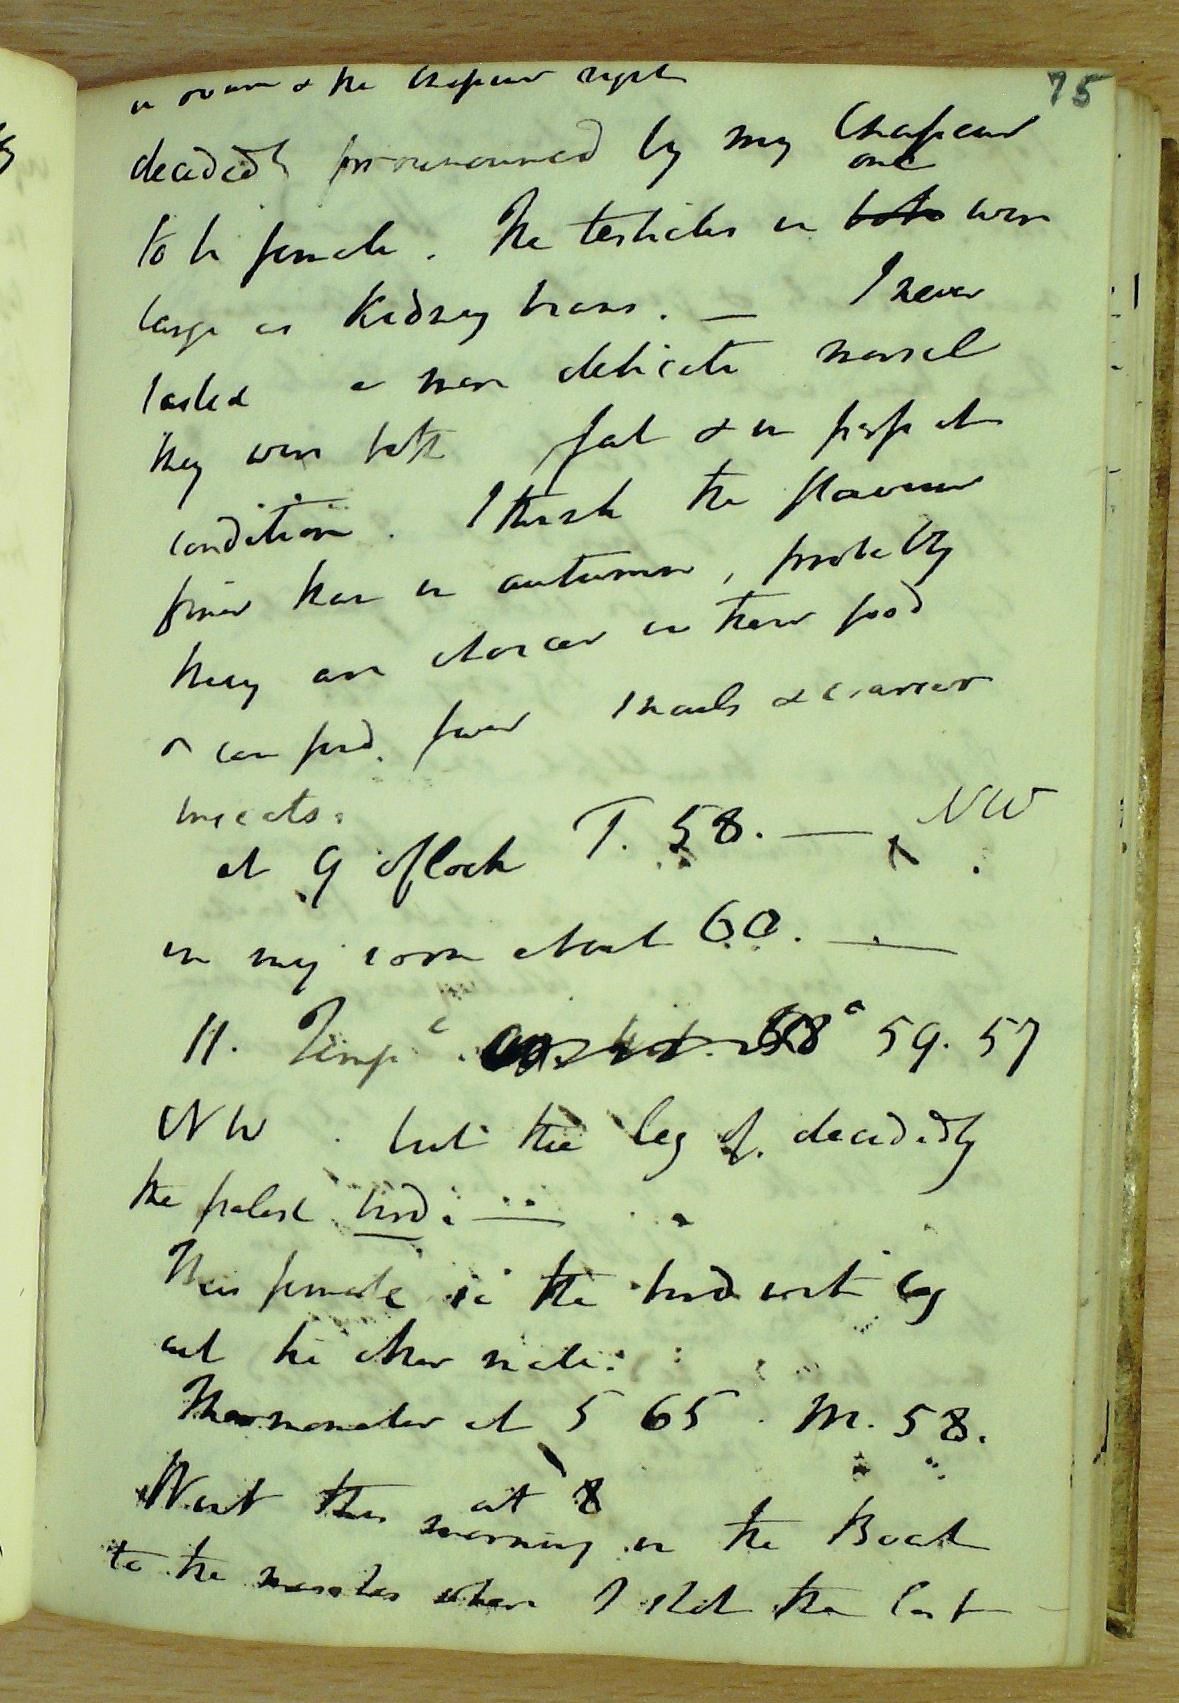 75
decidedly pronounced by my Chasseur
one
to be female. The testicles in both were
large as Kidney beans. — I never
tasted a more delicate morsel
they were both fat & in perfect
condition. I think the flavour
finer than in autumn, probably
they are choicer in their food
& can find fewer snails & coarser
insects.
at 9 o'clock T. 58. — NW
in my room about 60. —
11. Temp 58° 59. 57
NW. but the leg of decidedly
the palest bird. —
This female is the bird with egg
and the other male.
Thermometer at 5 65. M. 58.
at 8
Went this morning in the Boat
to the marshes where I shot the last